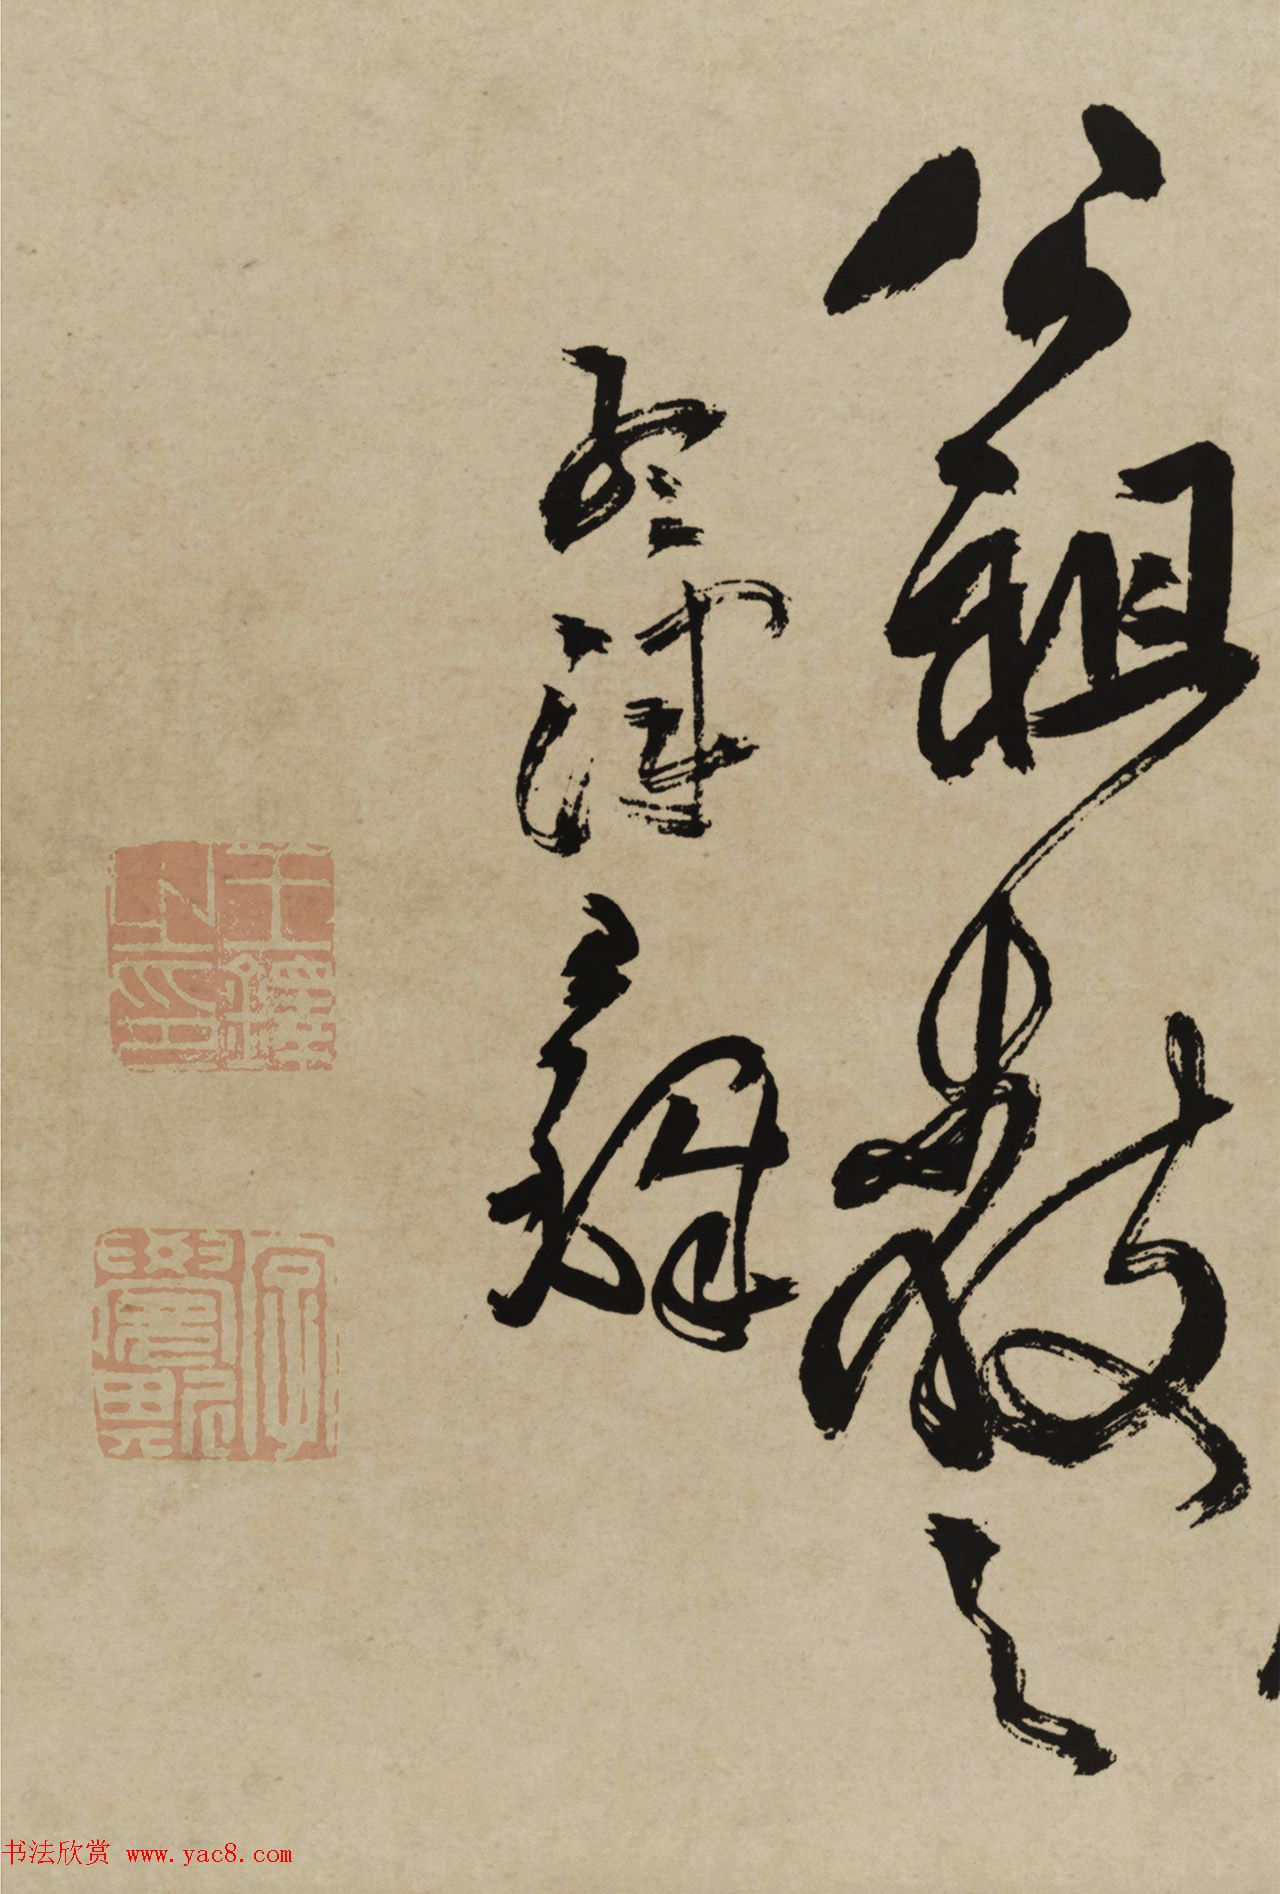 公祖教之
孟津王鐸
王鐸之印
书法欣赏 www.yac8.com